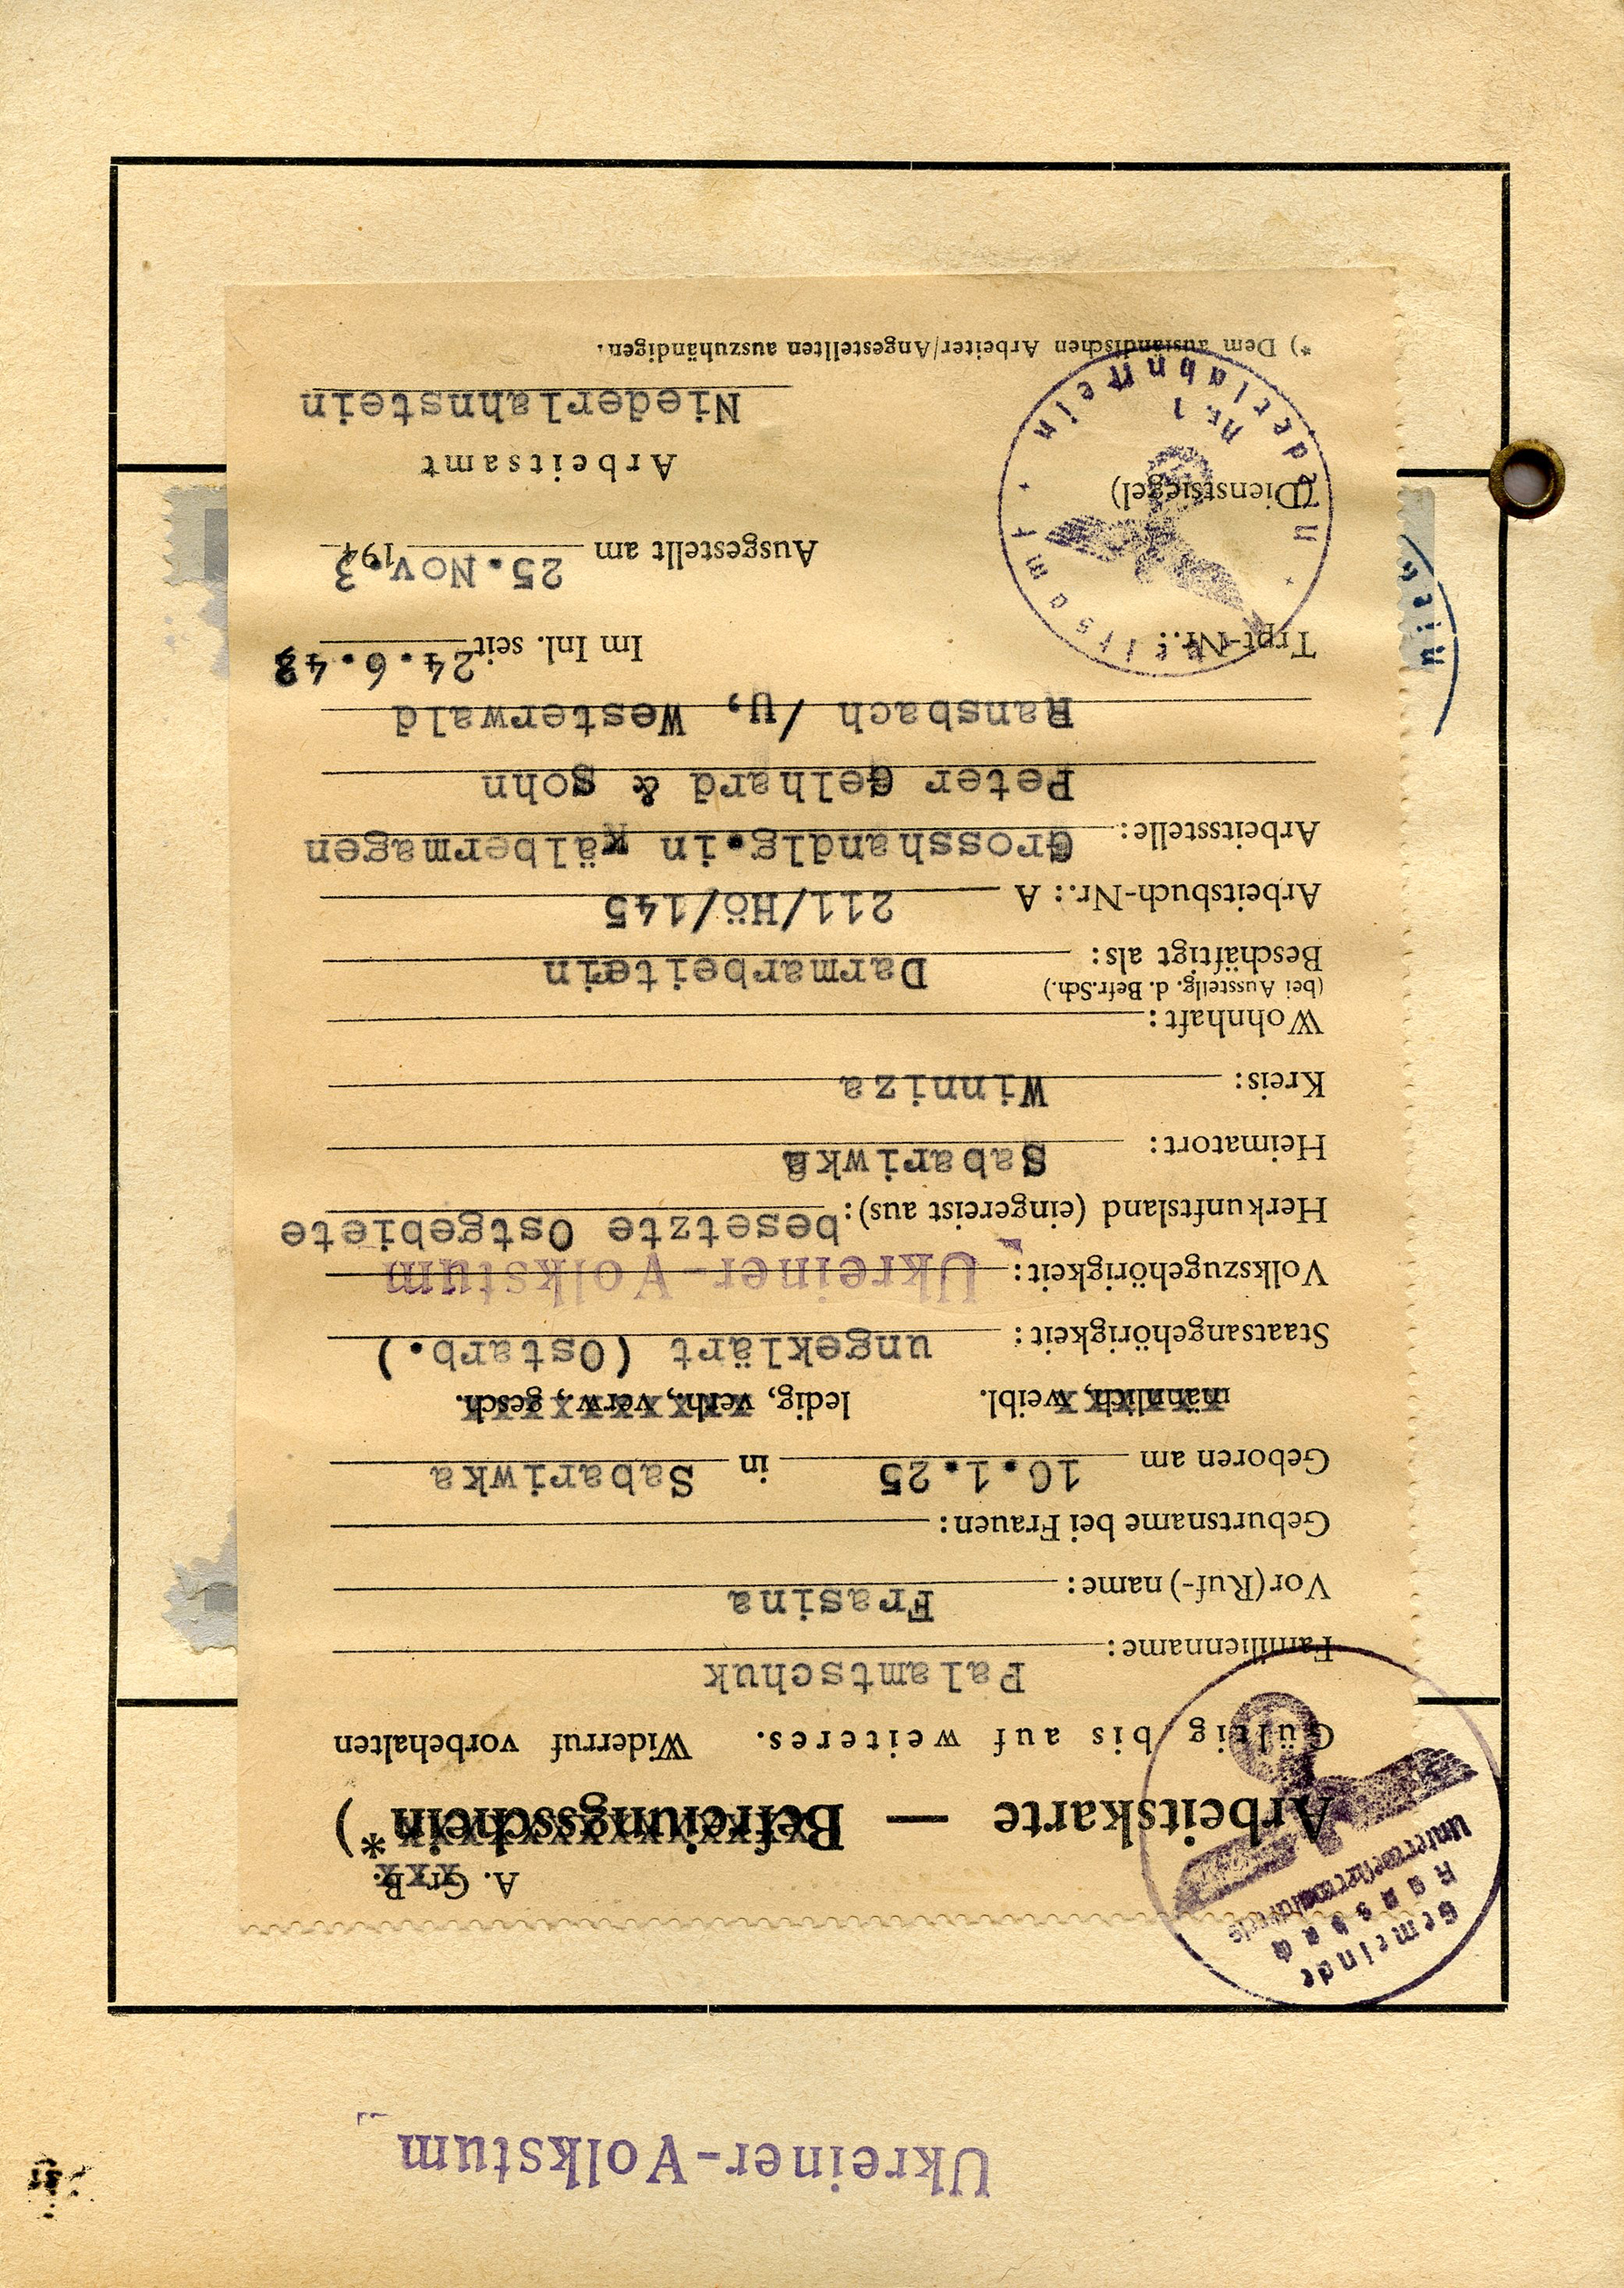 Ukreiner-Volkstum
Gemeinde
Ransbach
Unterwesterwaldkreis
A. Gr. R.
Arbeitskarte — Befreiungsschein *)
Gültig bis auf weiteres. Widerruf vorbehalten
Familienname: Palamtschuk
Vor(Ruf-)name: Frasina
Geburtsname bei Frauen:
Geboren am 10.1.25 in Sabariwka
männlich, weibl. ledig, verh., verw., gesch.
Staatsangehörigkeit: ungeklärt (Ostarb.)
Volkszugehörigkeit: Ukreiner-Volkstum
Herkunftsland (eingereist aus): besetzte Ostgebiete
Heimatort: Sabariwka
Kreis: Winniza
Wohnhaft:
(bei Ausstellg. d. Befr.Sch.)
Beschäftigt als: Darmarbeiterin
Arbeitsbuch-Nr.: A 211/Hö/145
Arbeitsstelle: Grosshandlg.in Kälbermagen
Peter Gelhard & Sohn
Ransbach /u, Westerwald
Trpt-Nr.: Im Inl. seit 24.6.43
Ausgestellt am 25.Nov.1943
(Dienstsiegel)
Arbeitsamt
Niederlahnstein
Arbeitsamt Niederlahnstein
Nr. 1
*) Dem ausländischen Arbeiter/Angestellten auszuhändigen.